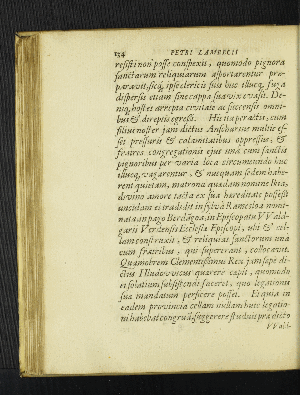 134 PETRI LAMBECII
resisti non posse conspexit, quomodo pignora
sanctarum reliquiarum asportarentur præ-
paravit, sicq́; ipse clericis suis huc illucq́; fuga
dispersis etiam sine cappa sua vix evasit. De-
niq; hostes arrepta civitate ac succensis omni-
bus & direptis egressi. His ita peractis, cum
frater noster jam dictus Anscharius multis es-
set pressuris & calamitatibus oppressus, &
fratres congregationis ejus una cum sanctis
pignoribus per varia loca circumundo huc
illucq; vagarentur, & nusquam sedem habe-
rent quietam, matrona quædam nomine Ikia,
divino amore tacta ex sua hæreditate possessi-
unculam ei tradidit in sylva Ramesloa nomi-
nata in pago Berdãgoa, in Episcopatu VVald-
garii Verdensis Ecclesiæ Episcopi, ubi & cel-
lam construxit, & reliquias sanctorum una
cum fratribus, qui supererant, collocavit.
Quamobrem Clementissimus Rex jam sæpe di-
ctus Hludovvicus quærere cœpit, quomodo
ei solatium subsistendi faceret, quo legationis
suæ mandatum perficere posset. Et quia in
eadem provincia cellam nullam huic legatio-
ni habebat congruā, suggerere studuit prædicto
VVald-